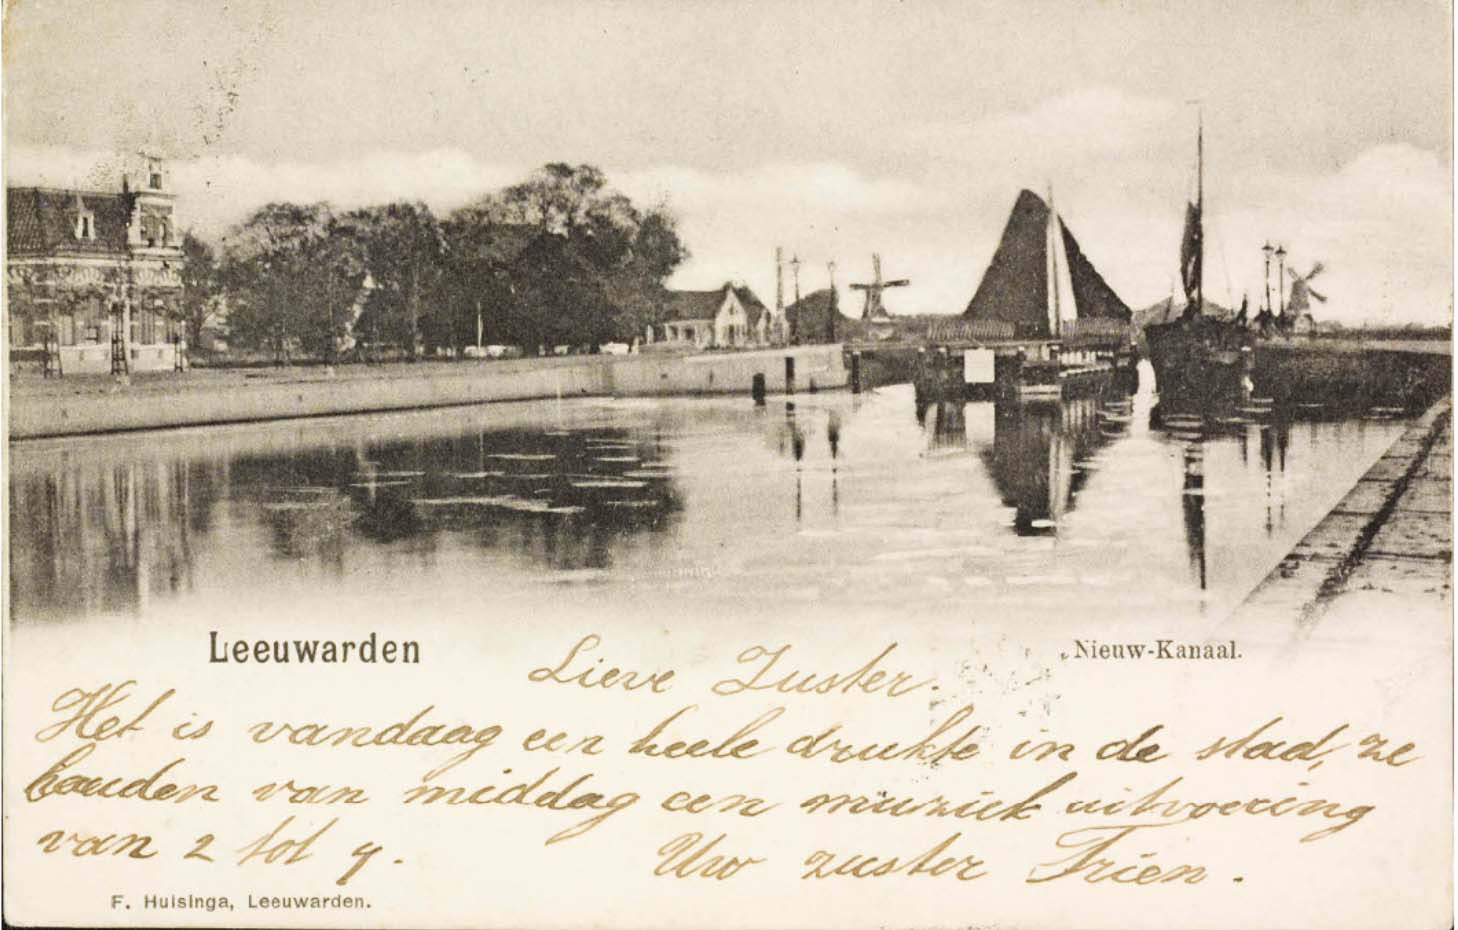 Leeuwarden
Nieuw-Kanaal.
Lieve Zuster.
Het is vandaag een heele drukte in de stad, ze
houden van middag een muziek uitvoering
van 2 tot 4.
Uw zuster Trien.
F. Huisinga, Leeuwarden.